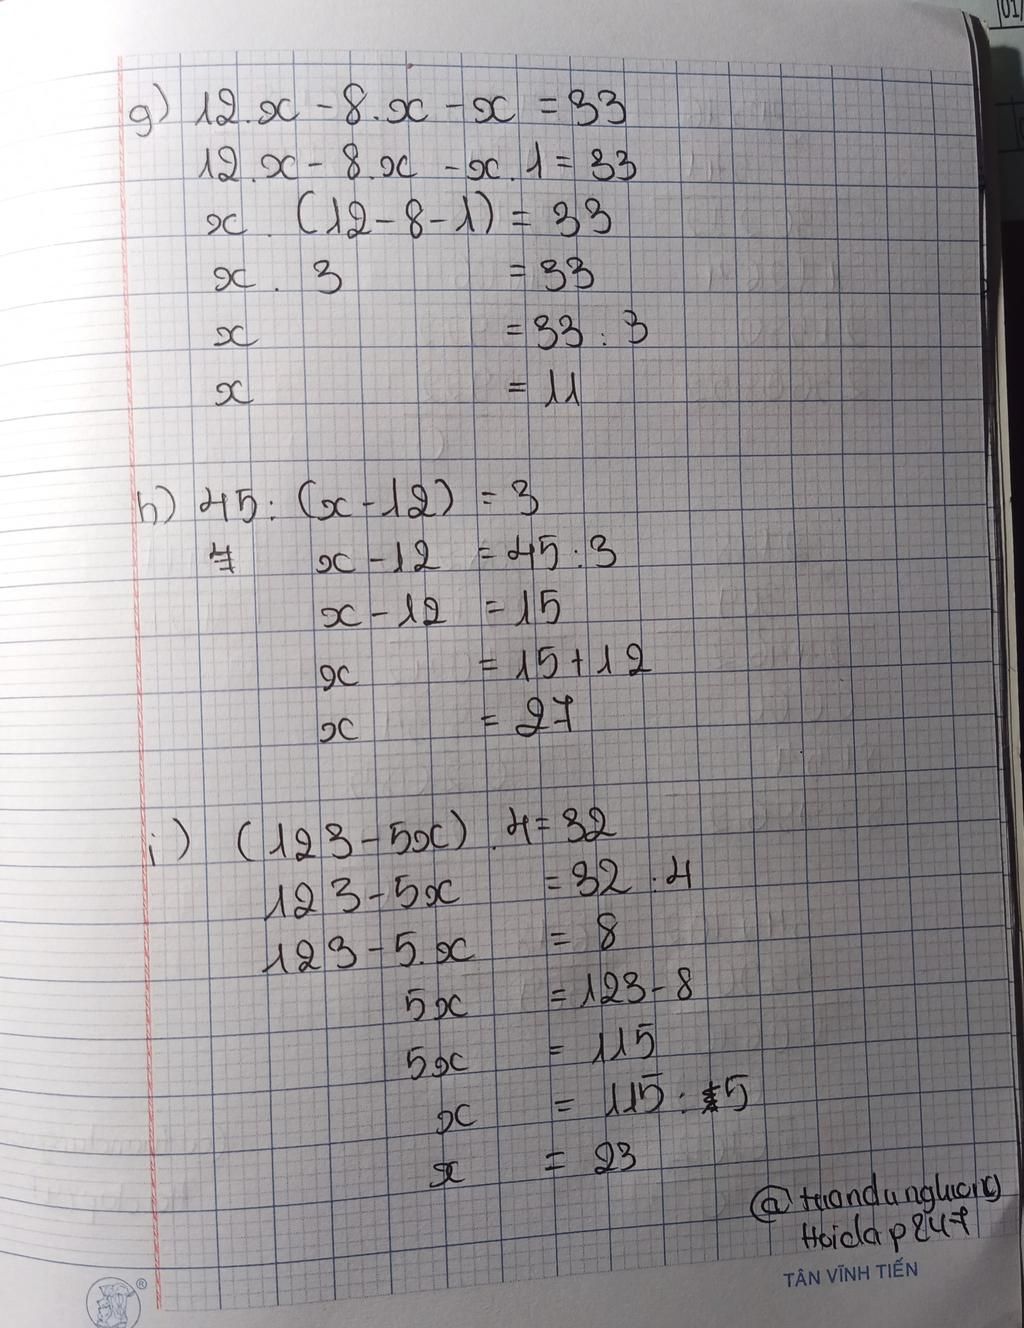 g) 12.x - 8.x - x = 33
12.x - 8.x - x.1 = 33
x . (12 - 8 - 1) = 33
x . 3 = 33
x = 33 : 3
x = 11
h) 45 : (x - 12) = 3
x - 12 = 45 : 3
x - 12 = 15
x = 15 + 12
x = 27
i) (123 - 5x) . 4 = 32
123 - 5x = 32 : 4
123 - 5.x = 8
5x = 123 - 8
5x = 115
x = 115 : 5
x = 23
Hoidap247
TÂN VĨNH TIẾN
®